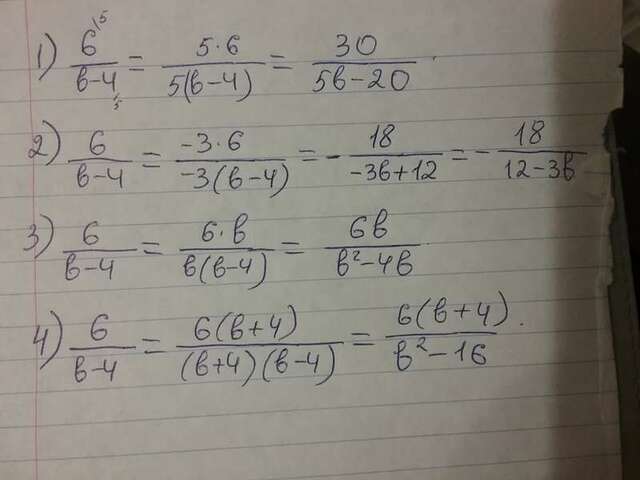 1) 6\5/в-4\5 = 5·6/5(в-4) = 30/5в-20.
2) 6/в-4 = -3·6/-3(в-4) = - 18/-3в+12 = - 18/12-3в
3) 6/в-4 = 6·в/в(в-4) = 6в/в²-4в.
4) 6/в-4 = 6(в+4)/(в+4)(в-4) = 6(в+4)/в²-16.